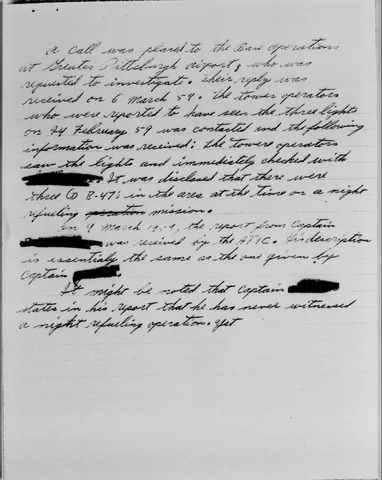 A call was placed to the Base operations
at Greater Pittsburgh airport, who was
requested to investigate. Their reply was
received on 6 March 59. The tower operators
who were reported to have seen the three lights
on 24 February 59 was contacted and the following
information was received: The tower operators
saw the lights and immediately checked with
. It was disclosed that there were
three (3) B-47's in the area at the time on a night
refueling operation mission.
On 9 March 1959, the report from Captain
was received by the ATIC. His description
is essentially the same as the one given by
Captain .
It might be noted that Captain
states in his report that he has never witnessed
a night refueling operation. Yet